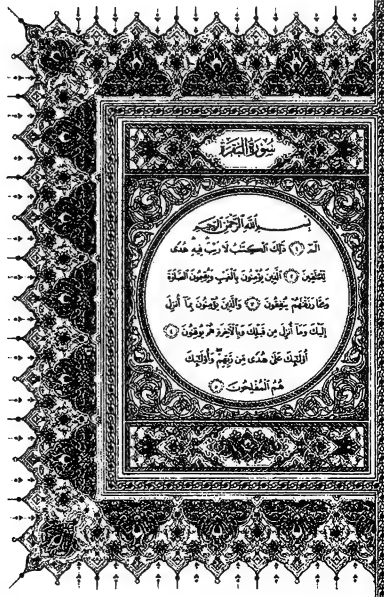 سُورَةُ البَقَرَةِ
بِسْمِ اللَّهِ الرَّحْمَٰنِ الرَّحِيمِ
الٓمٓ ﴿١﴾ ذَٰلِكَ الْكِتَٰبُ لَا رَيْبَ فِيهِ هُدًى
لِّلْمُتَّقِينَ ﴿٢﴾ الَّذِينَ يُؤْمِنُونَ بِالْغَيْبِ وَيُقِيمُونَ الصَّلَوٰةَ
وَمِمَّا رَزَقْنَٰهُمْ يُنفِقُونَ ﴿٣﴾ وَالَّذِينَ يُؤْمِنُونَ بِمَآ أُنزِلَ
إِلَيْكَ وَمَآ أُنزِلَ مِن قَبْلِكَ وَبِالْآخِرَةِ هُمْ يُوقِنُونَ ﴿٤﴾
أُو۟لَٰٓئِكَ عَلَىٰ هُدًى مِّن رَّبِّهِمْ وَأُو۟لَٰٓئِكَ
هُمُ الْمُفْلِحُونَ ﴿٥﴾